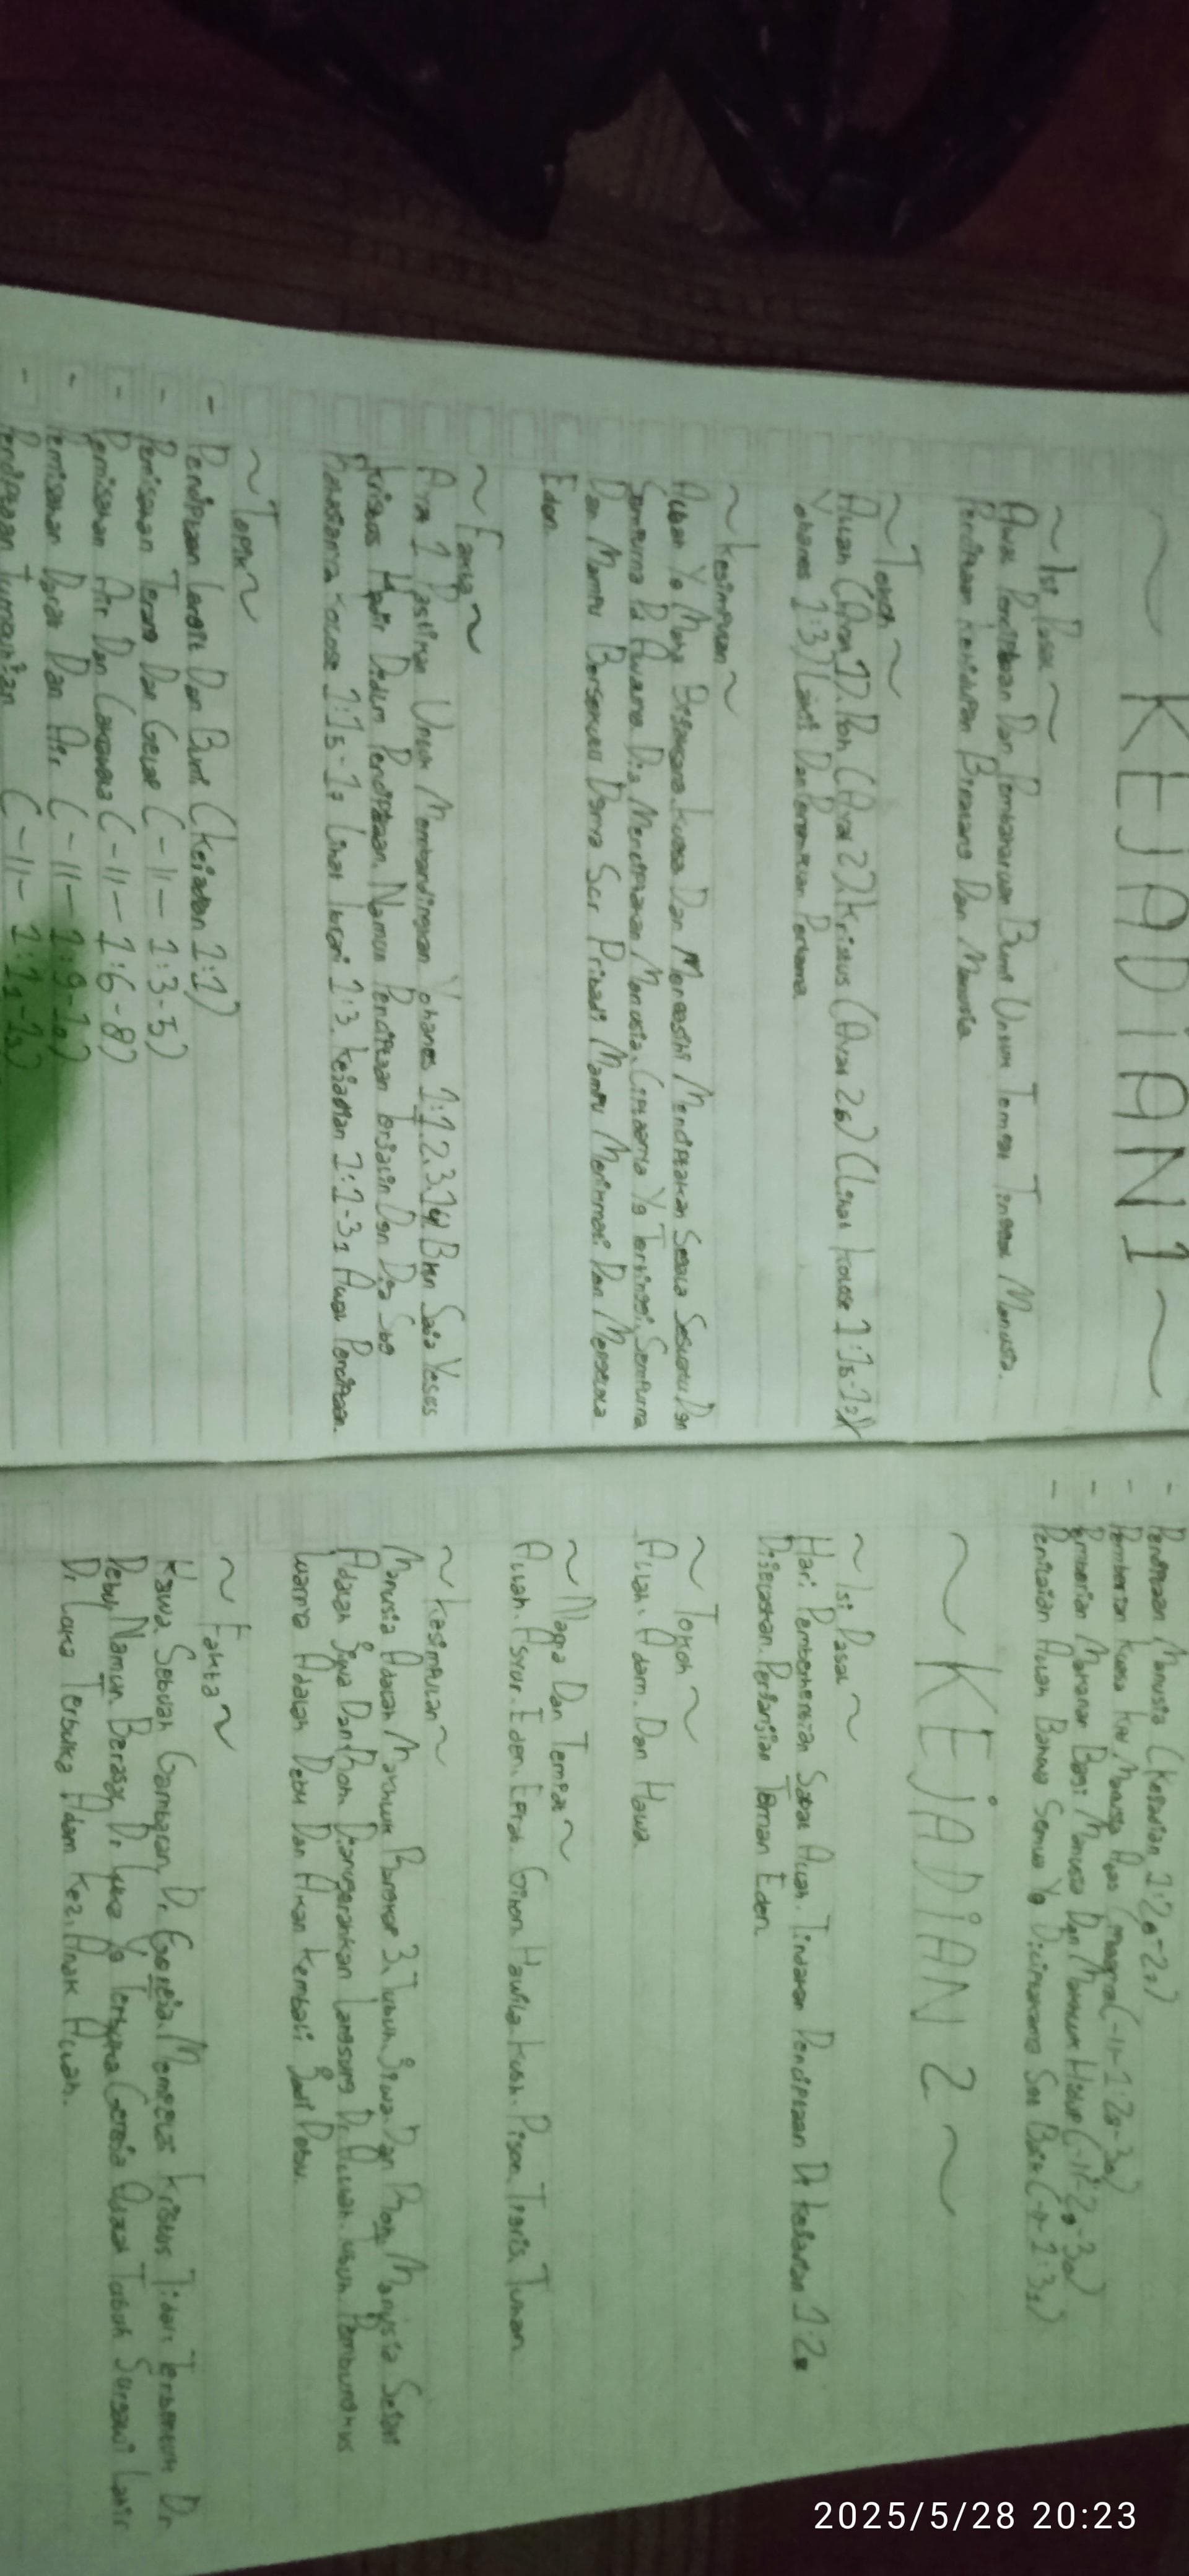 ~ KEJADIAN 1 ~
~ Isi Pasal ~
Awal Penciptaan Dan Pembaharuan Bumi Untuk Tempat Tinggal Manusia.
Penciptaan Kehidupan Binatang Dan Manusia
~ Tokoh ~
Allah (Ayat 1). Roh (Ayat 2) Kristus (Ayat 26) (Lihat Kolose 1:15-17)
Yohanes 1:3) Laki2 Dan Perempuan Pertama
~ Kesimpulan ~
Allah Yg Maha Kuasa Dan Mengasihi Menciptakan Segala Sesuatu Dgn
Sempurna Pd Awalnya Dia Menciptakan Manusia, Ciptaannya Yg Tertinggi, Sempurna
Dan Mampu Bersekutu Dgnnya Scr Pribadi Mampu Menikmati Dan Mengelola
Eden.
~ Fakta ~
Ayat 1 Pastikan Untuk Membandingkan Yohanes 1:1,2,3,14 Bkn Saja Yesus
Kristus Hadir Dalam Penciptaan. Namun Penciptaan Terjalin Dgn Dia Sbg
Kolose 1:15-17 Lihat Ibrani 1:3. Kejadian 1:1-31 Awal Penciptaan.
~ Topik ~
- Penciptaan Langit Dan Bumi (Kejadian 1:1)
- Pemisahan Terang Dan Gelap (-11- 1:3-5)
- Pemisahan Air Dan Cakrawala (-11- 1:6-8)
- Pemisahan Darat Dan Air (-11- 1:9-10)
- Penciptaan Tumbuh²an (-11- 1:11-13)
- Penciptaan Manusia (Kejadian 1:26-27)
- Pemberian Kuasa Kpd Manusia Atas (-11- 1:28-30)
- Pemberian Makanan Bagi Manusia Dan Makhluk Hidup (-11- 29-30)
- Penilaian Allah Bahwa Semua Yg Diciptakannya Sgt Baik (-11- 1:31)
~ KEJADIAN 2 ~
~ Isi Pasal ~
Hari Pemberhentian Sabat Allah. Tindakan Penciptaan Di Kejadian 1:2
Perjanjian Taman Eden.
~ Tokoh ~
Allah. Adam. Dan Hawa
~ Dan Tempat ~
Allah. Asyur. Eden. Efrat. Gihon. Hawila. Kush. Pison. Tigris. Tuhan
~ Kesimpulan ~
Manusia Adalah Makhluk 3. Tubuh, Jiwa, Dan Roh. Manusia Sejati
Adalah Jiwa Dan Roh Langsung Dr Allah. Tubuh Pembungkus
Luarnya Adalah Debu Dan Akan Kembali Jadi Debu.
~ Fakta ~
Hawa Sebuah Gambaran Dr Gereja. Mempelai Kristus Tidak Terbentuk Dr
Debu, Namun Berasal Dr Luka Yg Terbuka Gereja Adalah Tubuh Surgawi Lahir
Dr Luka Terbuka Adam Ke2, Anak Allah.
2025/5/28 20:23